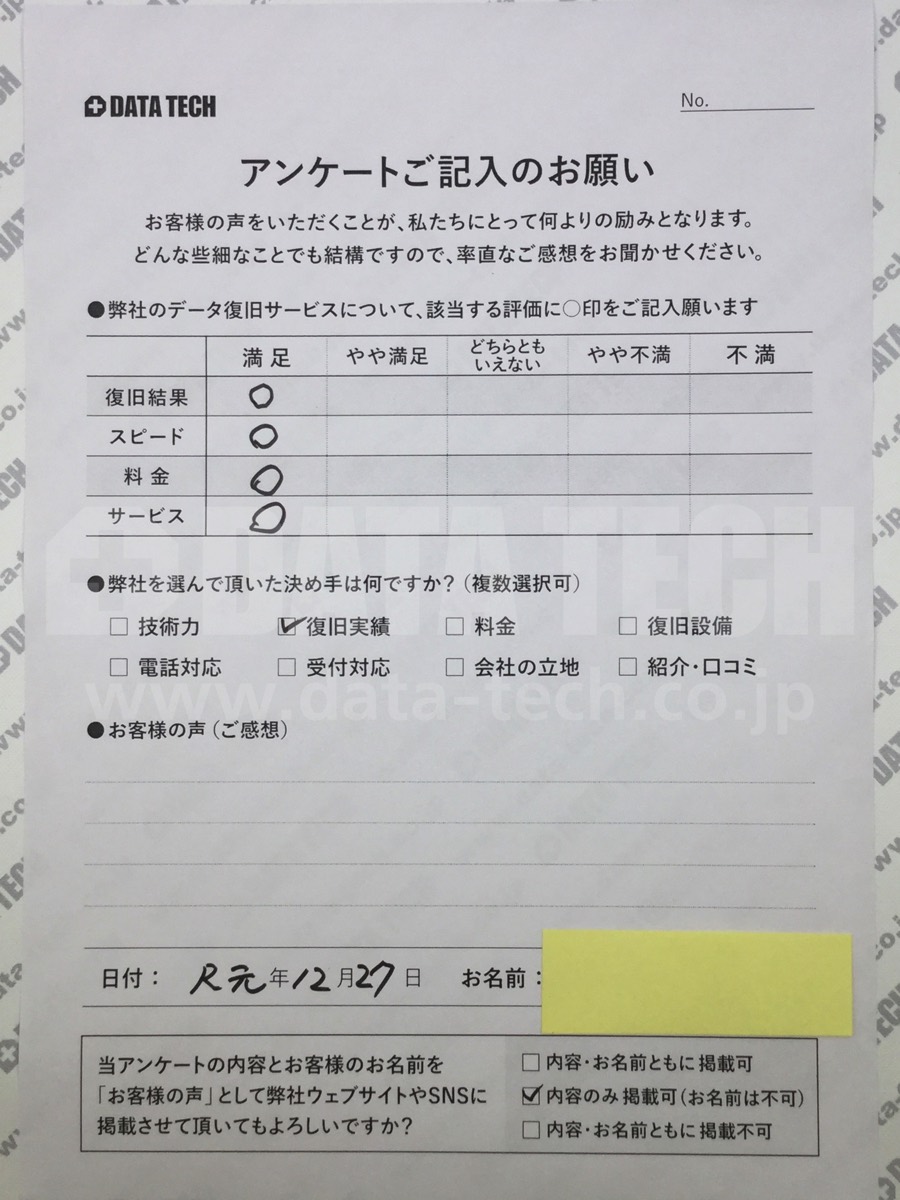 DATA TECH
No.
アンケートご記入のお願い
お客様の声をいただくことが、私たちにとって何よりの励みとなります。
どんな些細なことでも結構ですので、率直なご感想をお聞かせください。
●弊社のデータ復旧サービスについて、該当する評価に〇印をご記入願います
満足 やや満足 どちらとも いえない やや不満 不満
復旧結果 ○
スピード ○
料金 ○
サービス ○
DATA TECH
●弊社を選んで頂いた決め手は何ですか？（複数選択可）
□ 技術力 ☑ 復旧実績 □ 料金 □ 復旧設備
□ 電話対応 □ 受付対応 □ 会社の立地 □ 紹介・口コミ
www.data-tech.co.jp
●お客様の声（ご感想）
日付： R元年12月27日 お名前：
当アンケートの内容とお客様のお名前を
「お客様の声」として弊社ウェブサイトやSNSに
掲載させて頂いてもよろしいですか？
□ 内容・お名前ともに掲載可
☑ 内容のみ掲載可（お名前は不可）
□ 内容・お名前ともに掲載不可